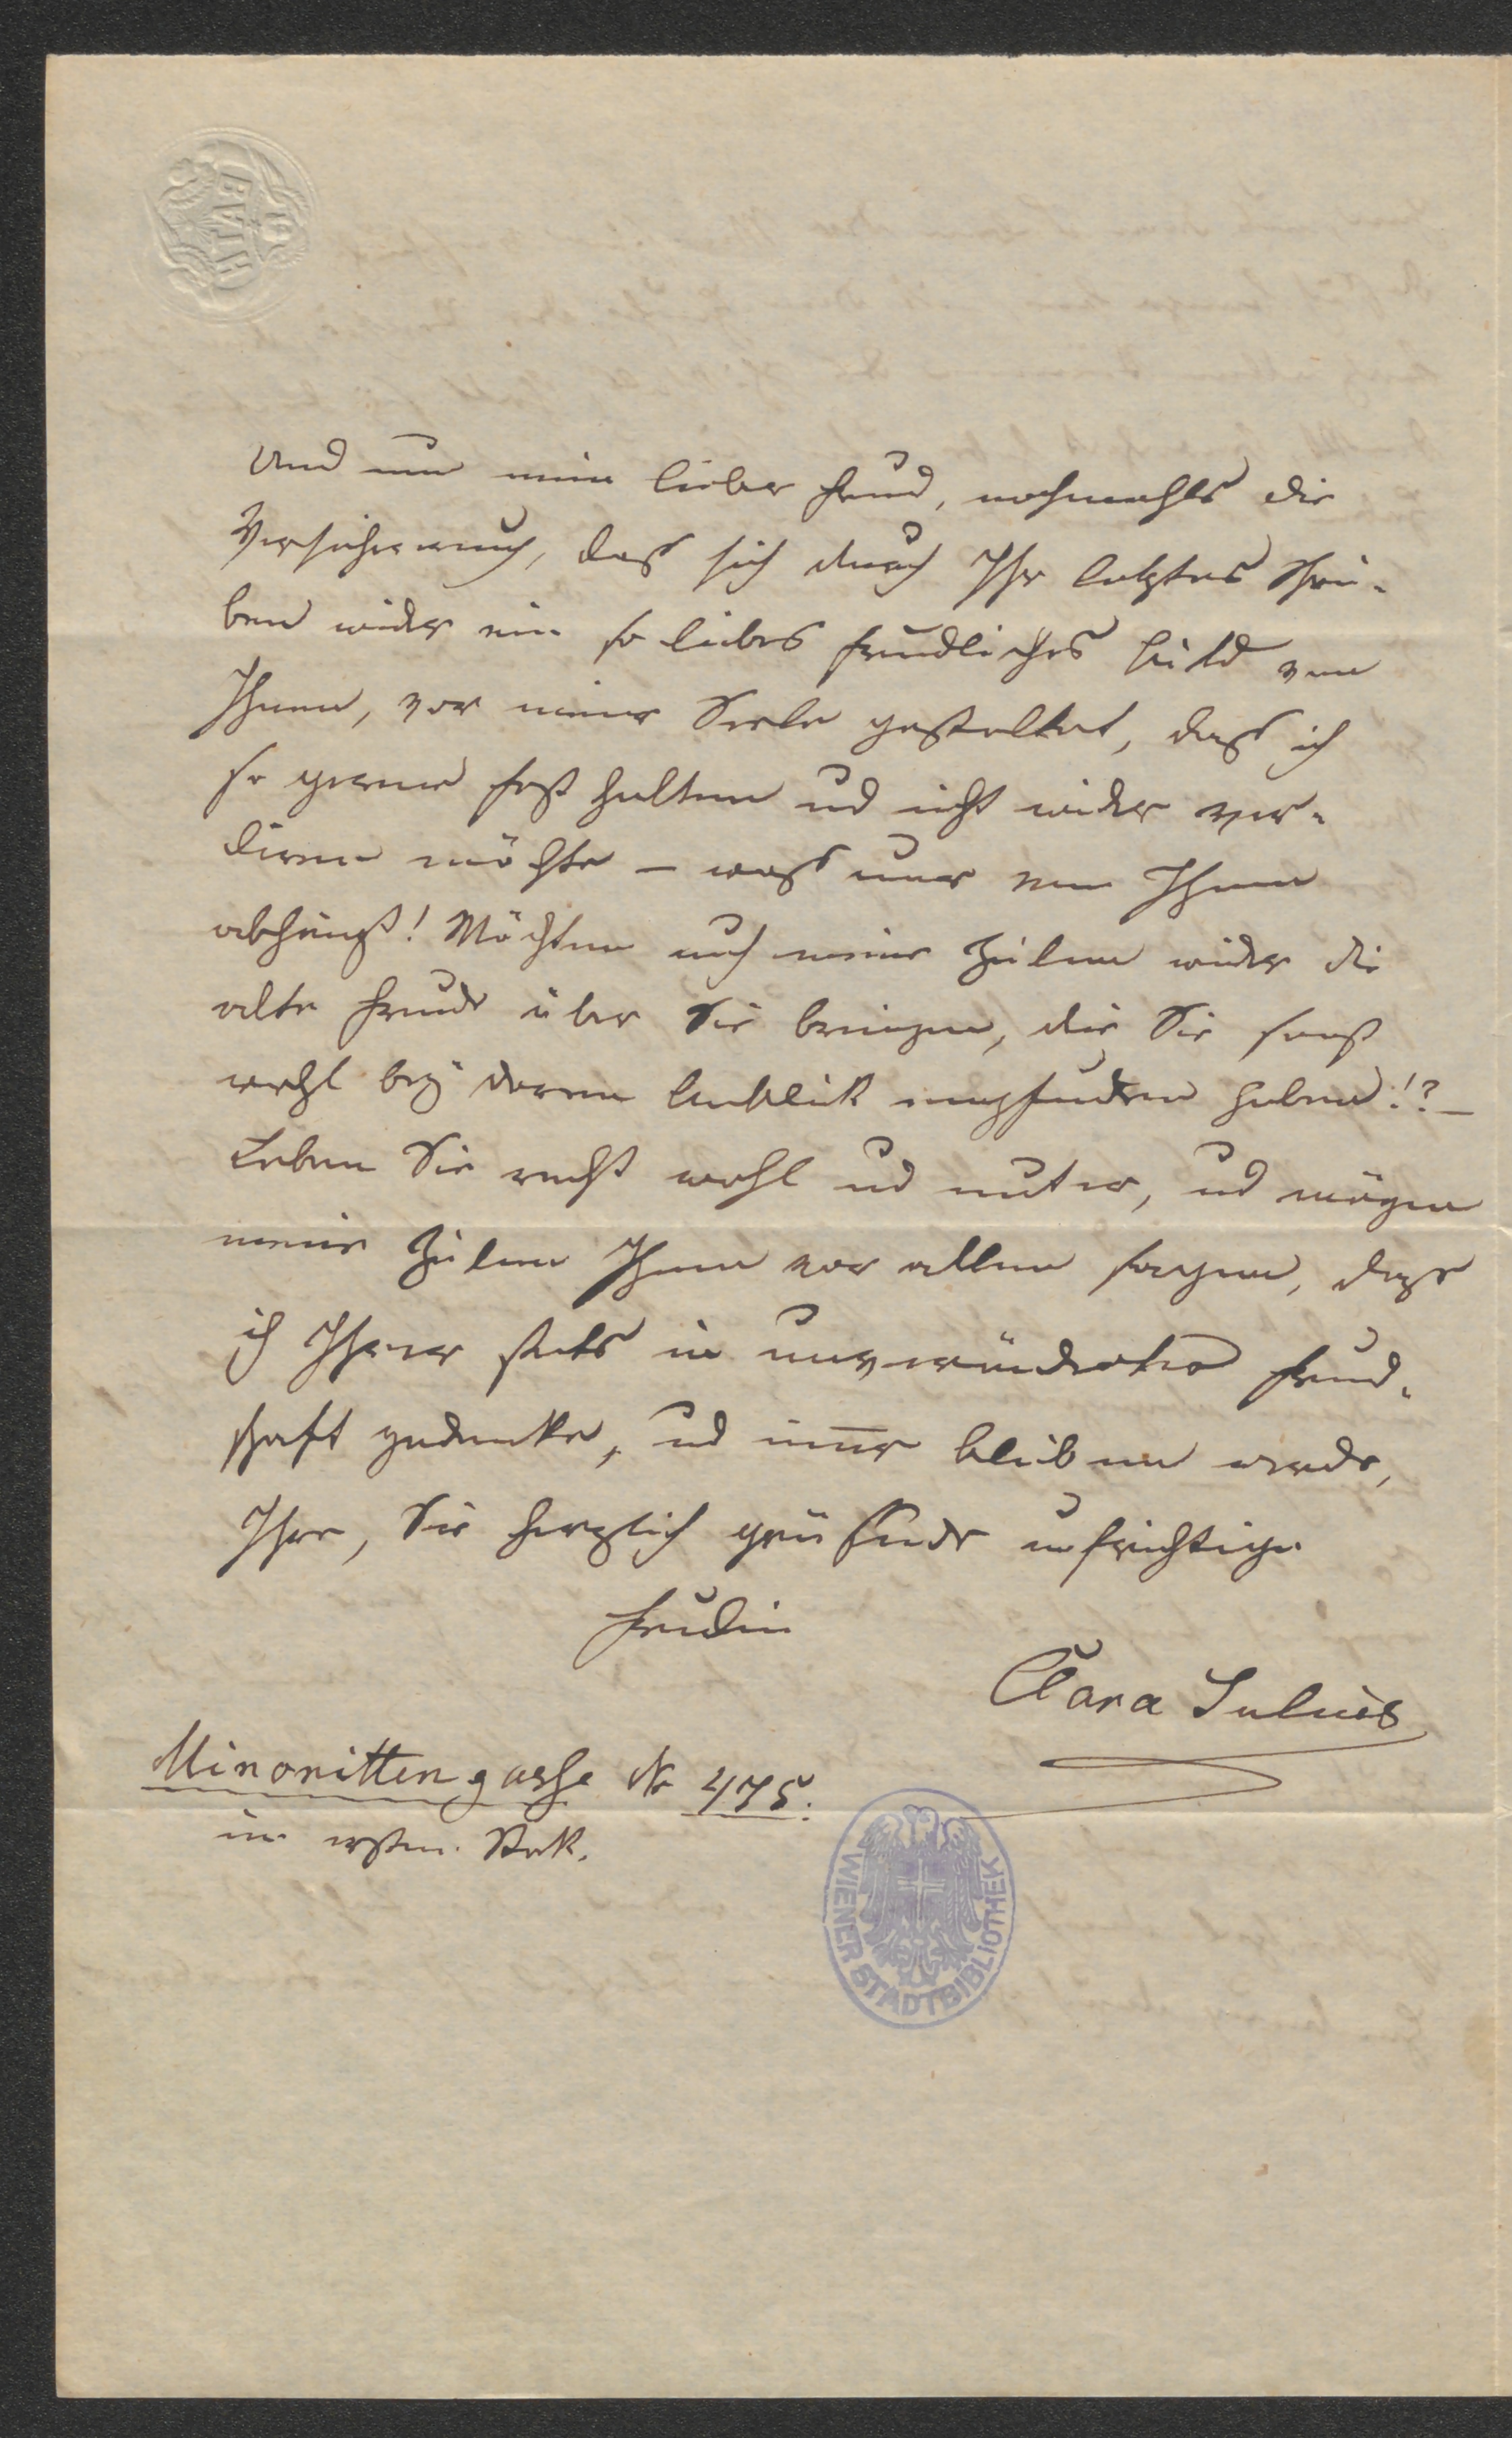 BATH
Und nun mein lieber Freund, nochmahls die
Versicherung, daß sich durch Ihr letztes Schrei-
ben wider ein so liebes freundliches Bild von
Ihnen, vor meiner Seele gestaltet, daß ich
so gerne fest halten und nicht wider ver-
lieren möchte – was nur von Ihnen
abhängt! Möchten auch meine Zeilen wider die
alte Freude über Sie bringen, die Sie sonst
wohl bey deren Anblick empfunden haben!? –
Leben Sie recht wohl und munter, und mögen
meine Zeilen Ihnen vor allem sagen, daß
ich Ihrer stets in unveränderter Freund-
schaft gedenke, und immer bleiben werde,
Ihre, Sie herzlich grüßende aufrichtige
Freundin
Clara
Minorittengasse No 475.
im ersten Stok.
WIENER STADTBIBLIOTHEK